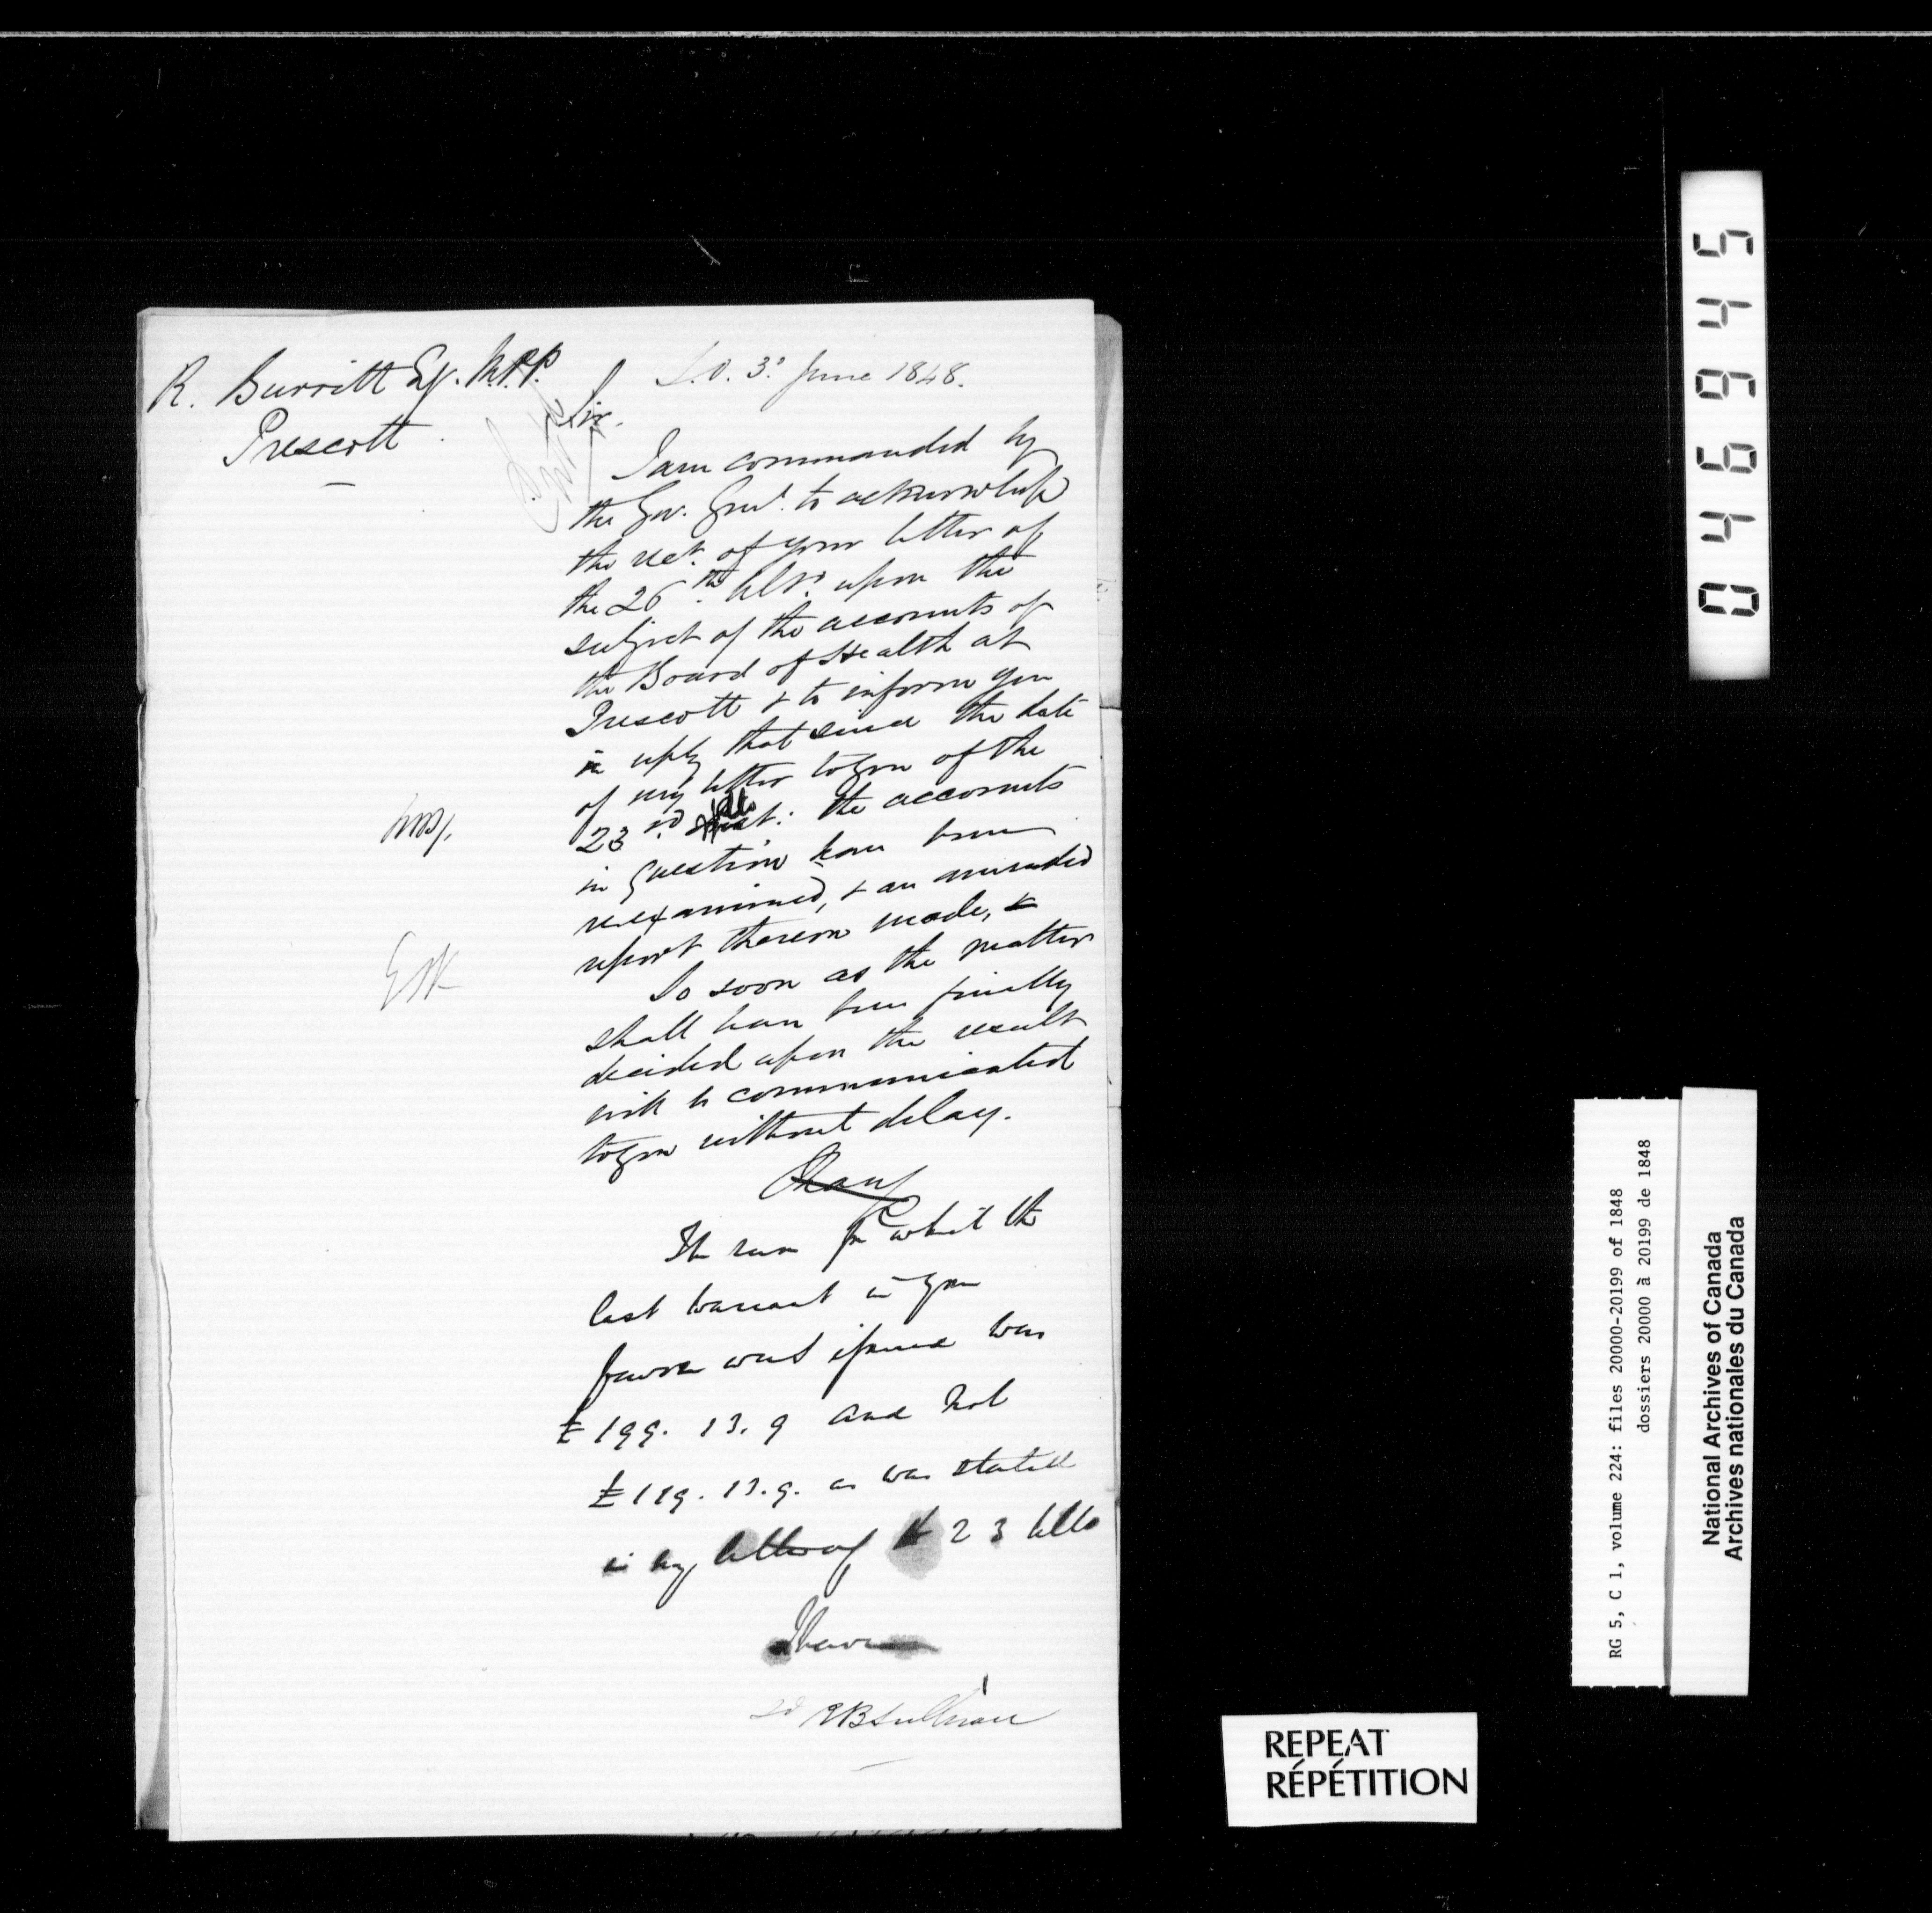 R. Burritt Esq. M.P.P.
Prescott
S.O. 3d June 1848.
Sir,
I am commanded by
the Gov. Genl. to acknowledge
the rect. of your letter of
the 26th Ulto. upon the
subject of the accounts of
the Board of Health at
Prescott & to inform you
in reply that since the date
of my letter to you of the
23rd Ulto: the accounts
in question have been
reexamined, & an amended
report thereon made, &
So soon as the matter
shall have been finally
decided upon the result
will be communicated
to you without delay.
I have
The sum for which the
last warrant in your
favor was issued was
£199. 13. 9 and not
£119. 13. 9. as was stated
in my letter of the 23 Ulto
I have
sd RB Sullivan
046945
RG 5, C 1, volume 224: files 20000-20199 of 1848
dossiers 20000 à 20199 de 1848
National Archives of Canada
Archives nationales du Canada
REPEAT
RÉPÉTITION